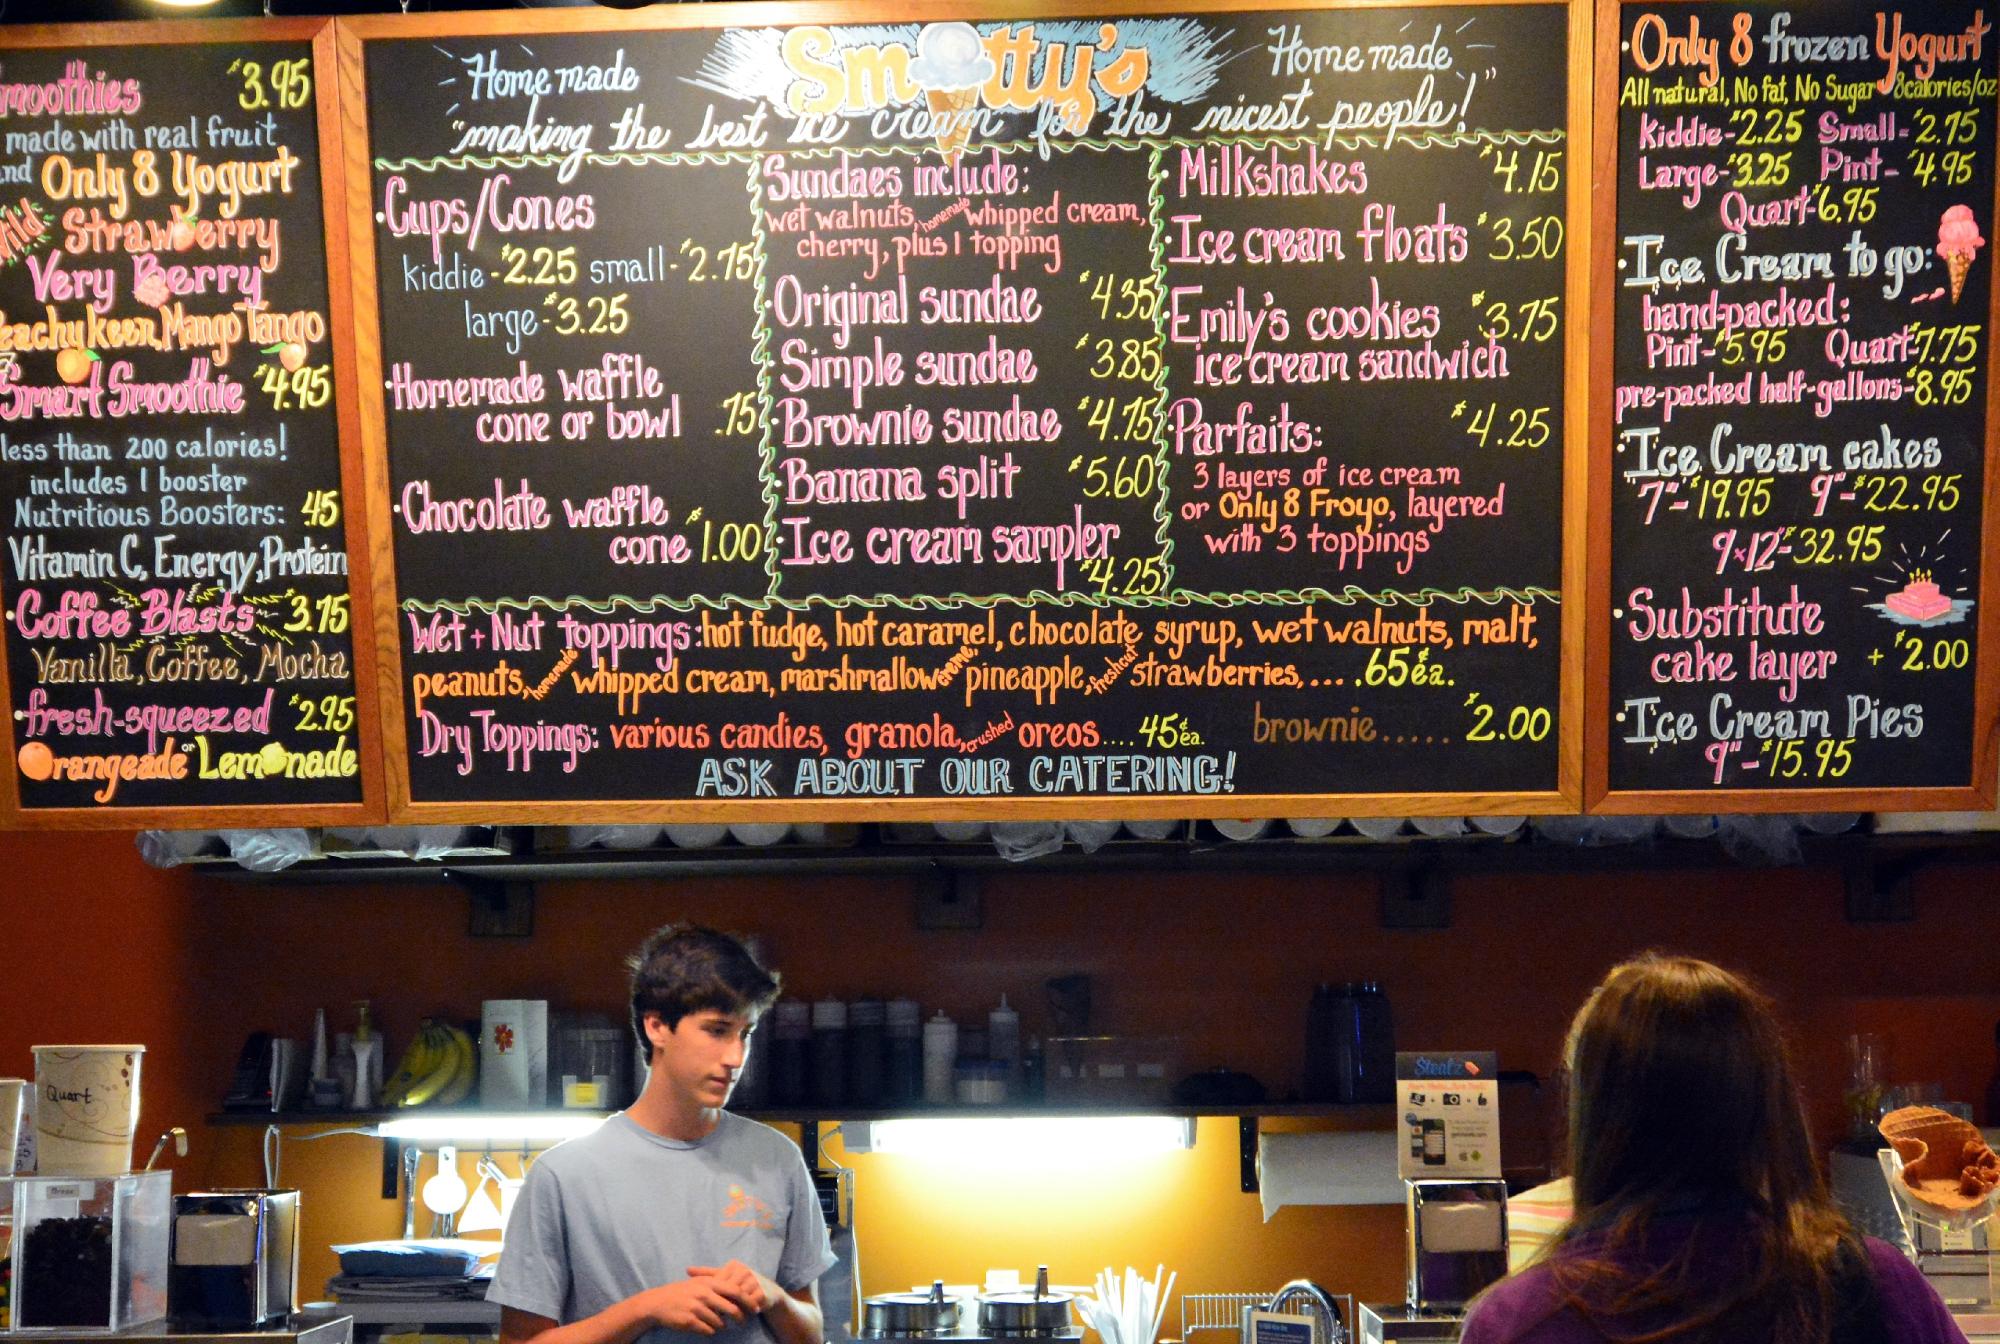 moothies $3.95
made with real fruit
and Only 8 Yogurt
Wild Strawberry
Very Berry
eachy keen, Mango Tango
Smart Smoothie $4.95
less than 200 calories!
includes 1 booster
Nutritious Boosters: .45
Vitamin C, Energy, Protein
Coffee Blasts $3.75
Vanilla, Coffee, Mocha
fresh-squeezed $2.95
Orangeade or Lemonade
Smotty's
Home made Home made
"making the best ice cream for the nicest people!"
Cups/Cones
kiddie - $2.25 small - $2.75
large - $3.25
Homemade waffle
cone or bowl .75
Chocolate waffle
cone $1.00
Sundaes include:
wet walnuts, homemade whipped cream,
cherry, plus 1 topping
Original sundae $4.35
Simple sundae $3.85
Brownie sundae $4.75
Banana split $5.60
Ice cream sampler
$4.25
Milkshakes $4.15
Ice cream floats $3.50
Emily's cookies $3.75
ice cream sandwich
Parfaits: $4.25
3 layers of ice cream
or Only 8 Froyo, layered
with 3 toppings
Wet + Nut toppings: hot fudge, hot caramel, chocolate syrup, wet walnuts, malt,
peanuts, homemade whipped cream, marshmallow creme, pineapple, fresh cut strawberries, ... .65¢ ea.
Dry Toppings: various candies, granola, crushed oreos .... 45¢ ea. brownie ..... $2.00
ASK ABOUT OUR CATERING!
Only 8 frozen Yogurt
All natural, No fat, No Sugar 8calories/oz
Kiddie - $2.25 Small - $2.75
Large - $3.25 Pint - $4.95
Quart - $6.95
Ice Cream to go:
hand-packed:
Pint - $5.95 Quart - $7.75
pre-packed half-gallons - $8.95
Ice Cream cakes
7" - $19.95 9" - $22.95
9x12 - $32.95
Substitute
cake layer + $2.00
Ice Cream Pies
9" - $15.95
Quart
Steal'z